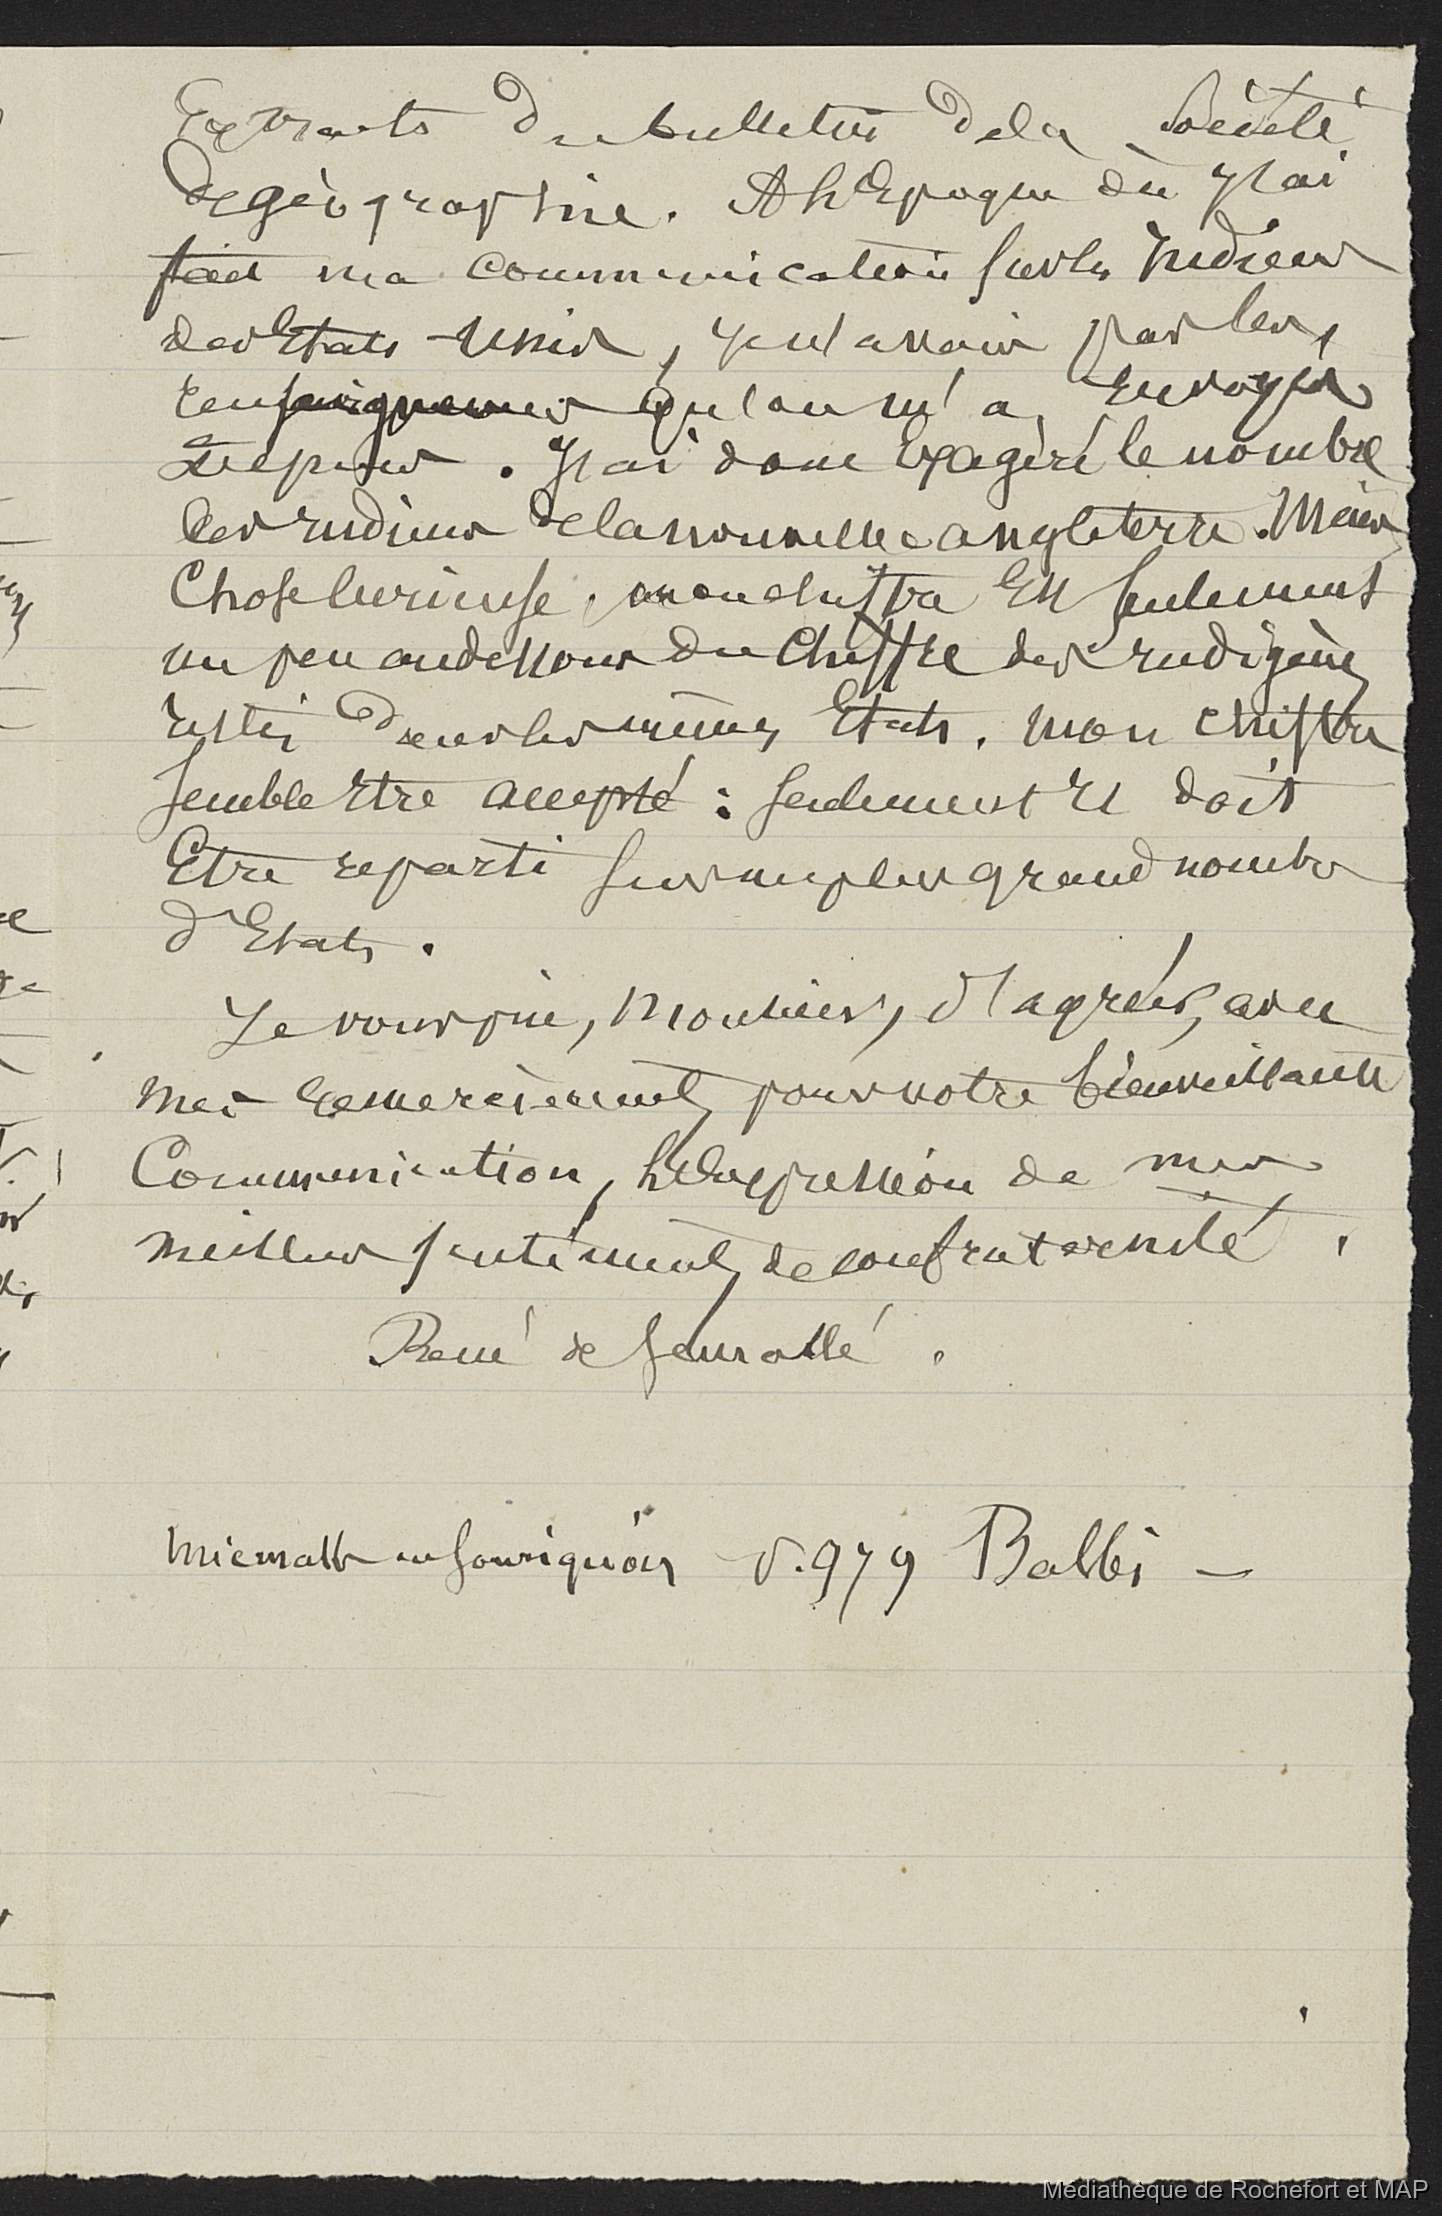 Extraits du bulletin de la Société
de géographie. A l'Epoque où J'ai
fait ma communication sur les Indiens
des Etats-Unis, je n'avais pas les
renseignements qu'on m'a Envoyés
depuis. J'ai donc Exagéré le nombre
des indiens de la nouvelle angleterre. Mais
Chose curieuse, mon chiffre Est seulement
un peu au dessous du Chiffre des indigènes
restés dans les mêmes Etats. Mon chiffre
semble Etre accepté : seulement il doit
Etre reparti sur un plus grand nombre
d'Etats.
Je vous prie, Monsieur, d'agréer, avec
mes remerciements pour votre bienveillante
Communication, l'Expression de mes
meilleurs sentiments de confraternité.
René de Semallé.
Micmaks ou Souriquois V. 979 Balbi —
Médiathèque de Rochefort et MAP